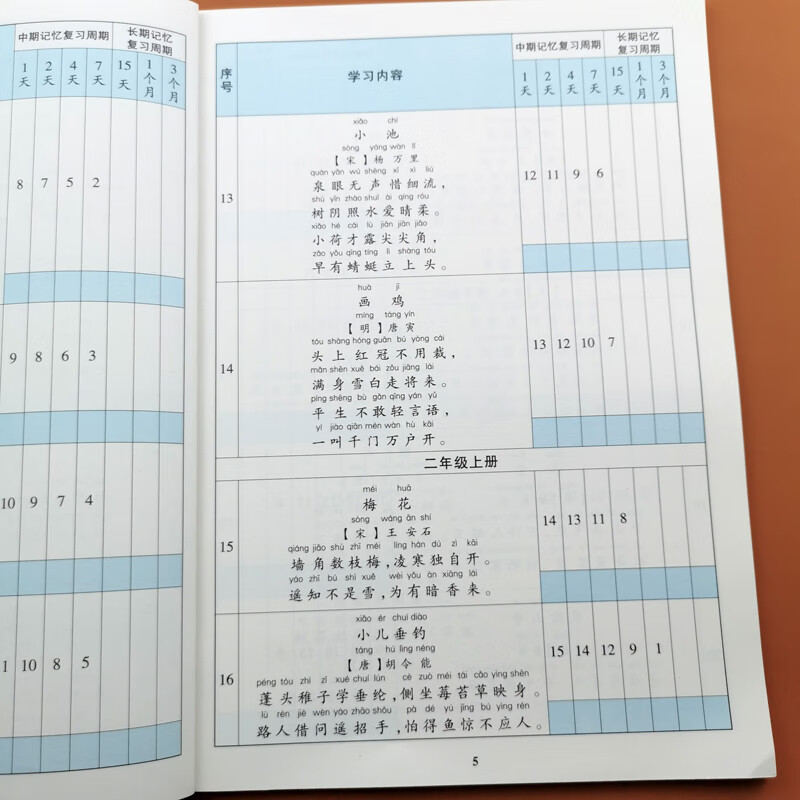 中期记忆复习周期 长期记忆复习周期
1天 2天 4天 7天 15天 1个月 3个月
8 7 5 2
9 8 6 3
10 9 7 4
1 10 8 5
序号 学习内容 中期记忆复习周期 长期记忆复习周期
1天 2天 4天 7天 15天 1个月 3个月
xiǎo chí
小 池
sòng yáng wàn lǐ
【宋】杨 万 里
quán yǎn wú shēng xī xì liú
泉眼无声惜细流，
shù yīn zhào shuǐ ài qíng róu
树阴照水爱晴柔。
xiǎo hé cái lù jiān jiān jiǎo
小荷才露尖尖角，
zǎo yǒu qīng tíng lì shàng tóu
早有蜻蜓立上头。
13
12 11 9 6
huà jī
画 鸡
míng táng yín
【明】唐 寅
tóu shàng hóng guān bú yòng cái
头上红冠不用裁，
mǎn shēn xuě bái zǒu jiāng lái
满身雪白走将来。
píng shēng bù gǎn qīng yán yǔ
平生不敢轻言语，
yí jiào qiān mén wàn hù kāi
一叫千门万户开。
14
13 12 10 7
二年级上册
méi huā
梅 花
sòng wáng ān shí
【宋】王 安 石
qiáng jiǎo shù zhī méi líng hán dú zì kāi
墙角数枝梅，凌寒独自开。
yáo zhī bú shì xuě wèi yǒu àn xiāng lái
遥知不是雪，为有暗香来。
15
14 13 11 8
xiǎo ér chuí diào
小儿垂钓
táng hú lìng néng
【唐】胡 令 能
péng tóu zhì zǐ xué chuí lún cè zuò méi tái cǎo yìng shēn
蓬头稚子学垂纶，侧坐莓苔草映身。
lù rén jiè wèn yáo zhāo shǒu pà dé yú jīng bú yìng rén
路人借问遥招手，怕得鱼惊不应人。
16
15 14 12 9 1
5